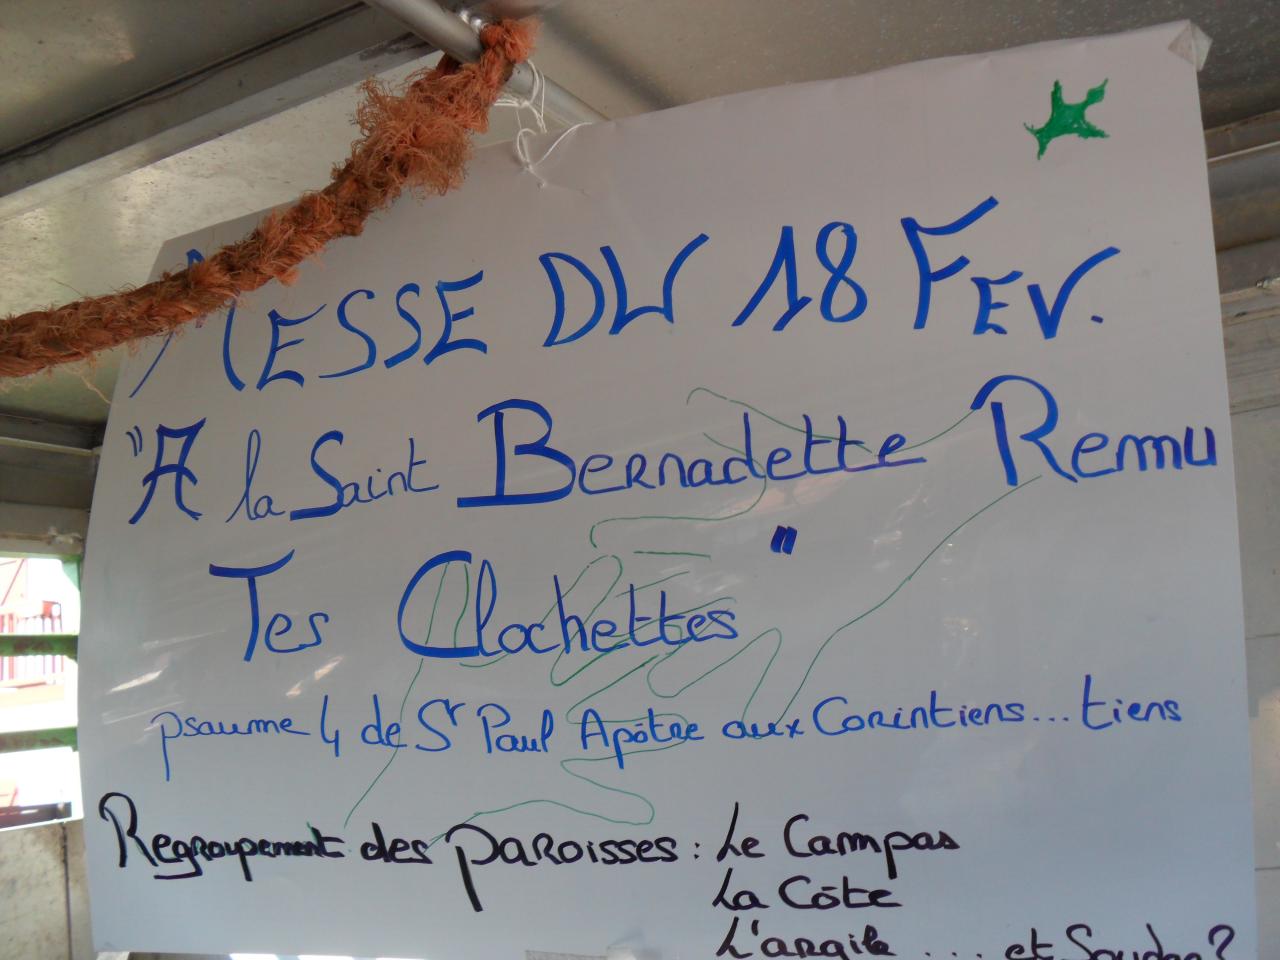 MESSE DU 18 FEV.
"A la Saint Bernadette Remu
Tes Clochettes"
psaume 4 de St Paul Apôtre aux Corintiens... tiens
Regroupement des paroisses : Le Campas
La Côte
L'argile .... et